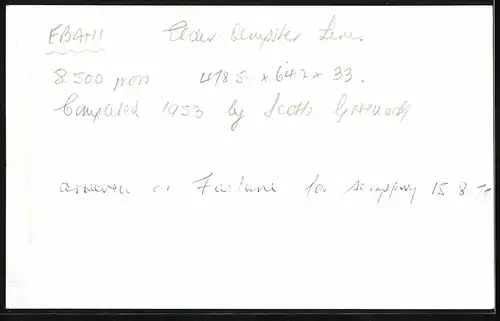 EBANI Elder Dempster Lines
8.500 gross 478.5 x 64.2 x 33.
Completed 1953 by Scotts Greenock
arrived at Faslane for scrapping 15 8